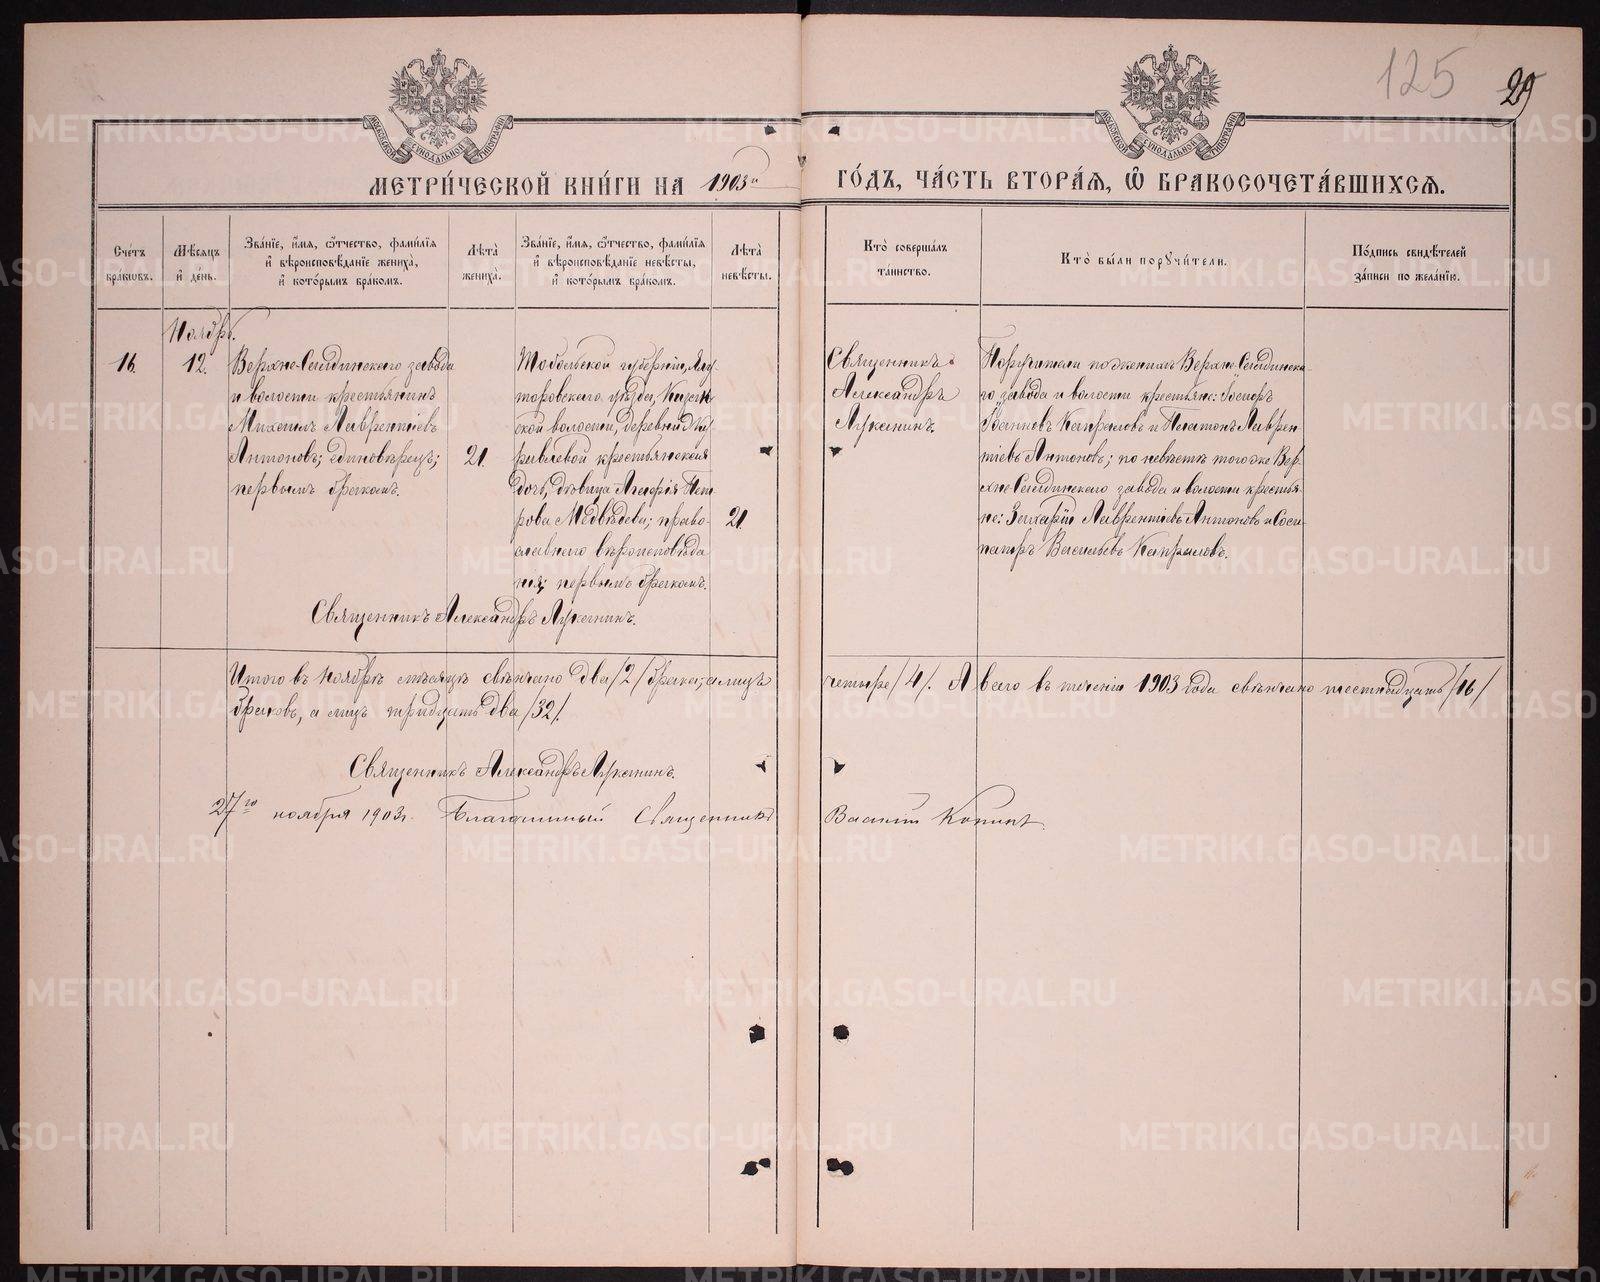 125
29
МЕТРИ́ЧЕСКОЙ КНИ́ГИ НА 1903й ГО́ДЪ, ЧА́СТЬ ВТОРА́Ѧ, Ѡ҆ БРАКОСОЧЕТА́ВШИХСѦ.
Сче́тъ бра́кѡвъ.
Мѣ́сѧцъ и҆ де́нь.
Зва́нїе, и҆́мѧ, ѻ҆́тчество, фами́лїѧ и҆ вѣроисповѣ́данїе жениха̀, и҆ кото́рымъ бра́комъ.
Лѣ́та жениха̀.
Зва́нїе, и҆́мѧ, ѻ҆́тчество, фами́лїѧ и҆ вѣроисповѣ́данїе невѣ́сты, и҆ кото́рымъ бра́комъ.
Лѣ́та невѣ́сты.
Кто̀ соверша́лъ та́инство.
Кто̀ бы́ли порꙋчи́тели.
По́дпись свидѣ́телей за́писи по жела́нїю.
Ноябрь.
16.
12.
Верхне-Сысдинского завода
и волости крестьянинъ
Михаилъ Лаврентіевъ
Антоновъ; единоверецъ;
первымъ бракомъ.
21.
Тобольской губерніи, Ялу-
торовского уѣзда,
ской волости, деревни Жу-
равлевой крестьянская
дочь, дѣвица Петрова
Медвѣдева; право-
славнаго вѣроисповѣда
нія; первымъ бракомъ.
21
Священникъ
Александръ
Луканинъ.
Поручители по женихѣ Верхне-Сысдинска-
го завода и волости крестьяне:
Іоанновъ Капраловъ и Платонъ Лаврен-
тіевъ Антоновъ; по невѣстѣ того же Вер-
хне-Сысдинского завода и волости крестья-
не: Захарій Лаврентіевъ Антоновъ и Соси-
патръ Васильевъ Капраловъ.
Священникъ Александръ Луканинъ.
Итого въ Ноябрѣ мѣсяцѣ свѣнчано два /2/ брака, а лицъ четыре /4/. А всего въ теченіи 1903 года свѣнчано шестнадцать /16/
браковъ, а лицъ тридцать два /32/.
Священникъ Александръ Луканинъ.
27го ноября 1903г. Благочинный Священникъ Василій
METRIKI.GASO-URAL.RU